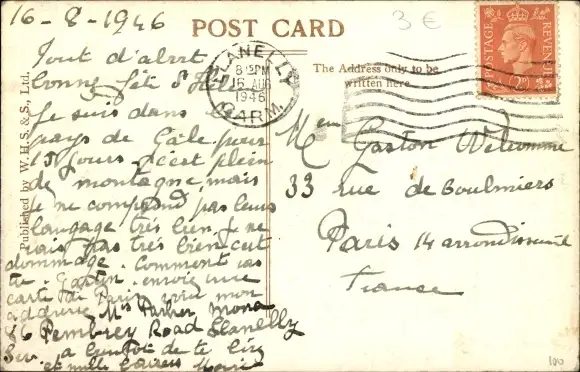 16-8-1946
POST CARD
3 €
LLANELLY
8 15 PM
16 AUG
1946
CARM.
POSTAGE
REVENUE
The Address only to be
written here
Published by W. H. S. & S., Ltd.
Tout d'abord
bonne fête
Je suis dans le
pays de Galle pour
15 jours c'est plein
de montagne, mais
je ne comprend pas leurs
langage très bien, Je ne
vais pas très bien c'est
dommage. Comment vas
te. Gaston. envoie une
carte de Paris, pour mon
addresse, Mrs Parker, Mona
86 Pembrey Road Llanelly
a bientot de te lire
et mille baisers Marie
Gaston
33 rue de Boulmiers
Paris 14 arrondissement
France
100